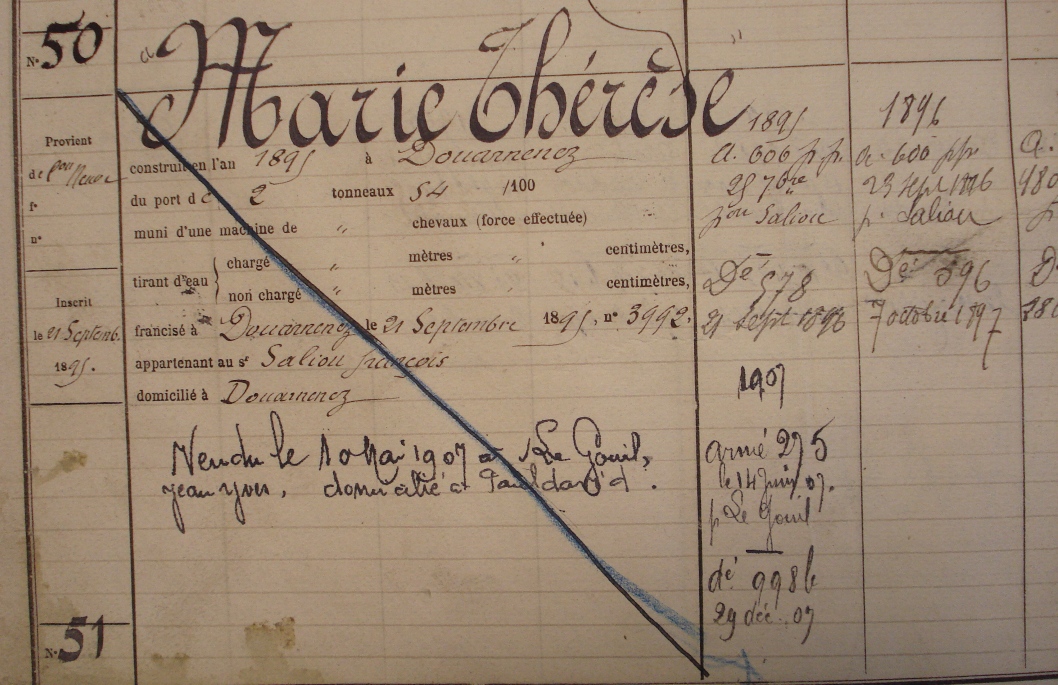 N° 50
Marie Thérèse
Provient
de
f°
n°
Inscrit
le 21 Septemb.
1895.
construit en l'an 1895 à Douarnenez
du port de 2 tonneaux 54 /100
muni d'une machine de " chevaux (force effectuée)
tirant d'eau { chargé " mètres " centimètres,
non chargé " mètres " centimètres,
francisé à Douarnenez le 21 Septembre 1895, n° 3992.
appartenant au sr Saliou françois
domicilié à Douarnenez
Vendu le 10 Mai 1907 à Le Gouil,
jean yves, domicilié à Pouldavid.
1895
a. 606 p. p.
25 7bre
pon Saliou
Dé 578
21 Sept 1896
1907
armé 275
le 14 Juin 07.
p Le Gouil
dé 998b
29 déc. 07
1896
a. 600 ppr
23 Sept 1896
p. Saliou
Dé 396
7 octobre 1897
a.
480
D
280
N° 51